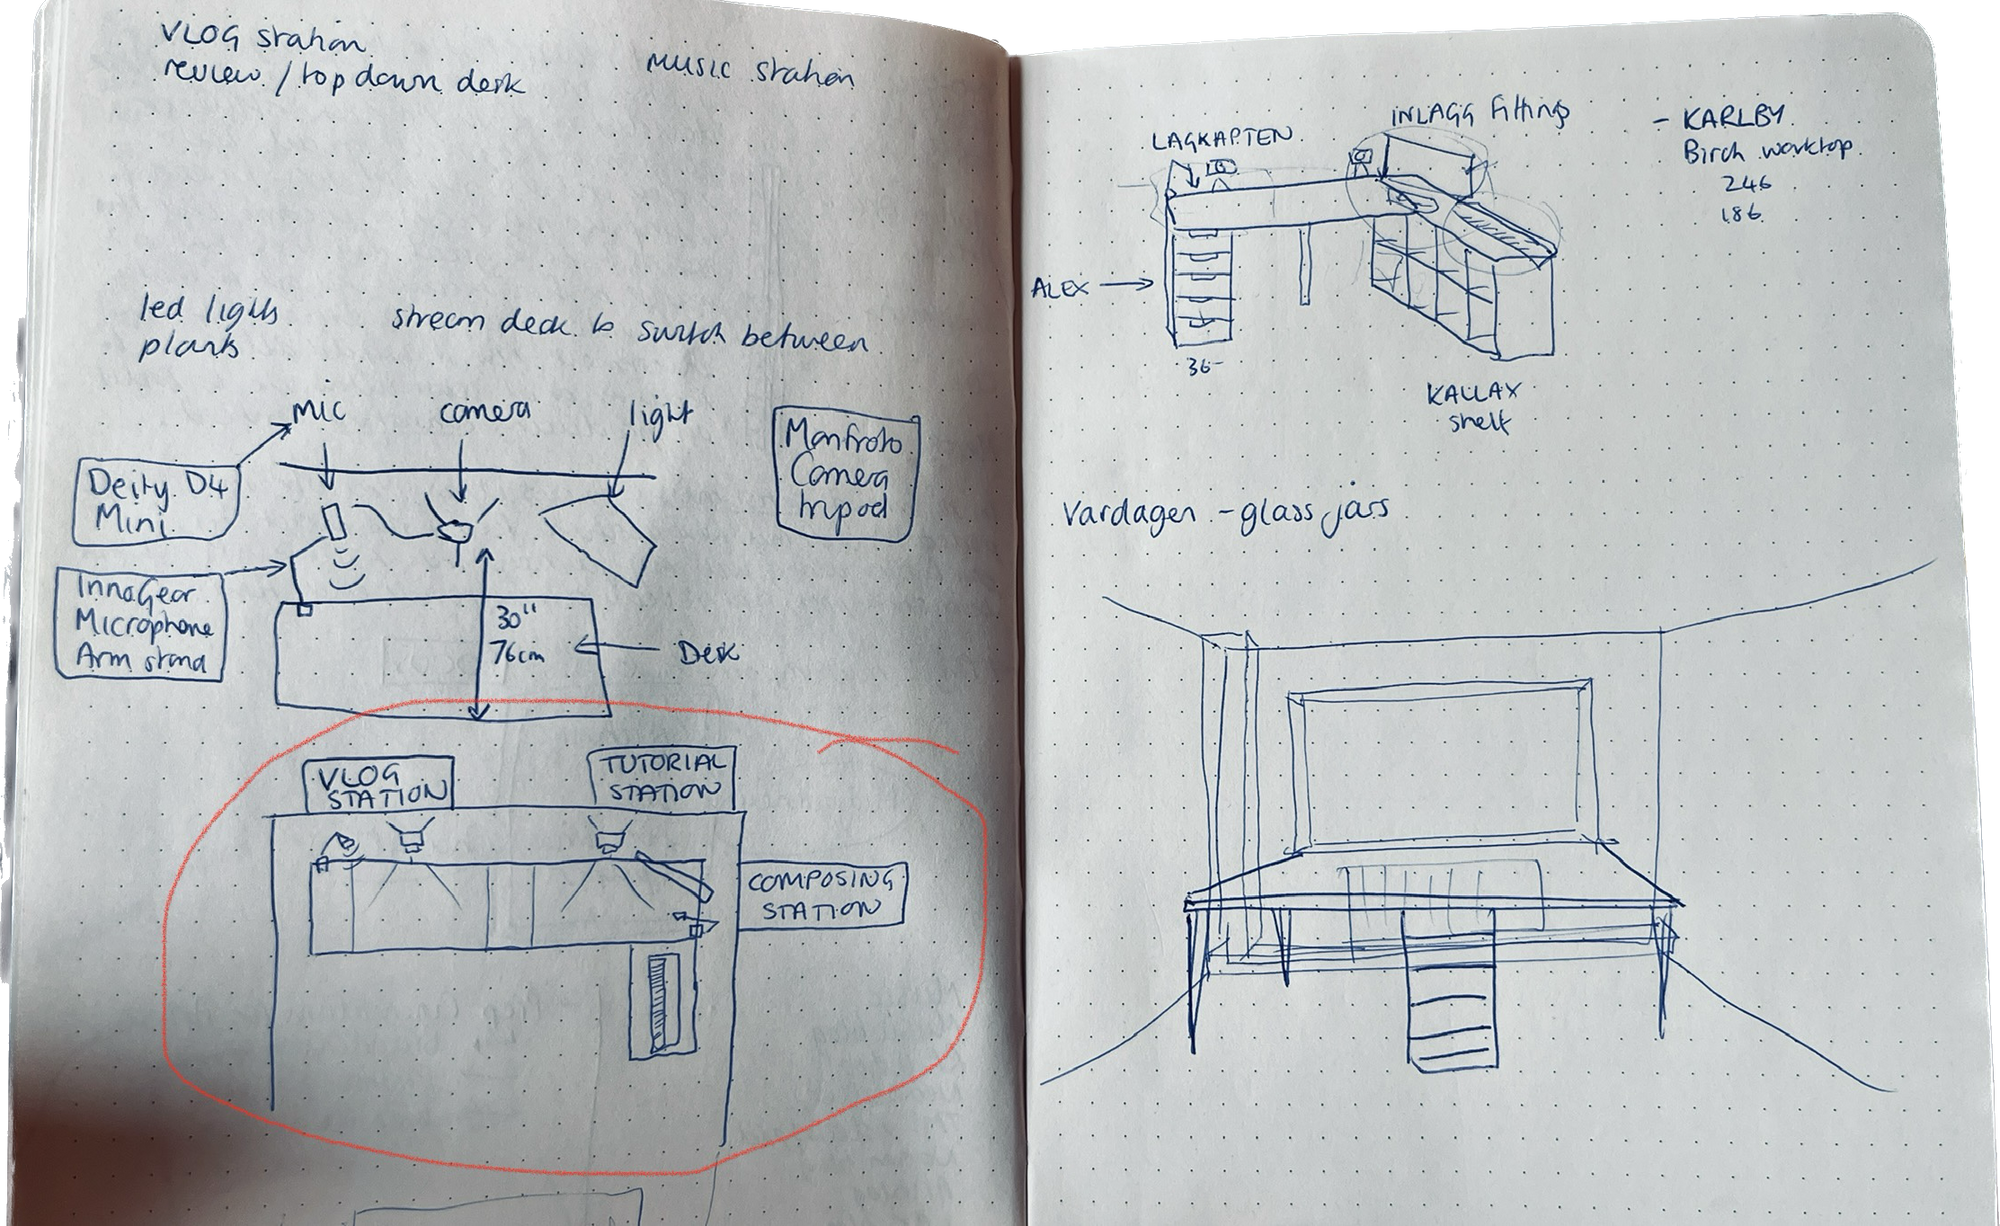 VLOG station
review / top down desk
music station
led lights
plants
stream deck to switch between
mic
camera
light
Deity D4
Mini
Manfroto
Camera
tripod
InnoGear
Microphone
Arm stand
30"
76cm
Desk
VLOG
STATION
TUTORIAL
STATION
COMPOSING
STATION
LAGKAPTEN
INLAGG fittings
- KARLBY
Birch worktop
246
186
ALEX
36-
KALLAX
shelf
Vardagen - glass jars